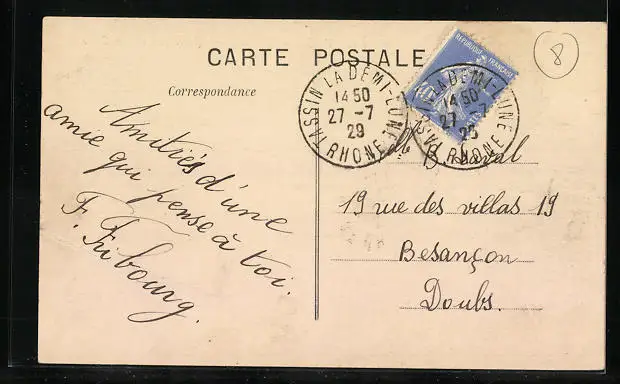 CARTE POSTALE
Correspondance
Amitiés d'une
amie qui pense à toi.
F. Fribourg.
TASSIN LA DEMI-LUNE
14 50
27 - 7
29
RHONE
REPUBLIQUE FRANÇAISE
40
LA DEMI-LUNE
14 50
27 - 7
29
RHONE
8
19 rue des villas 19
Besançon
Doubs.